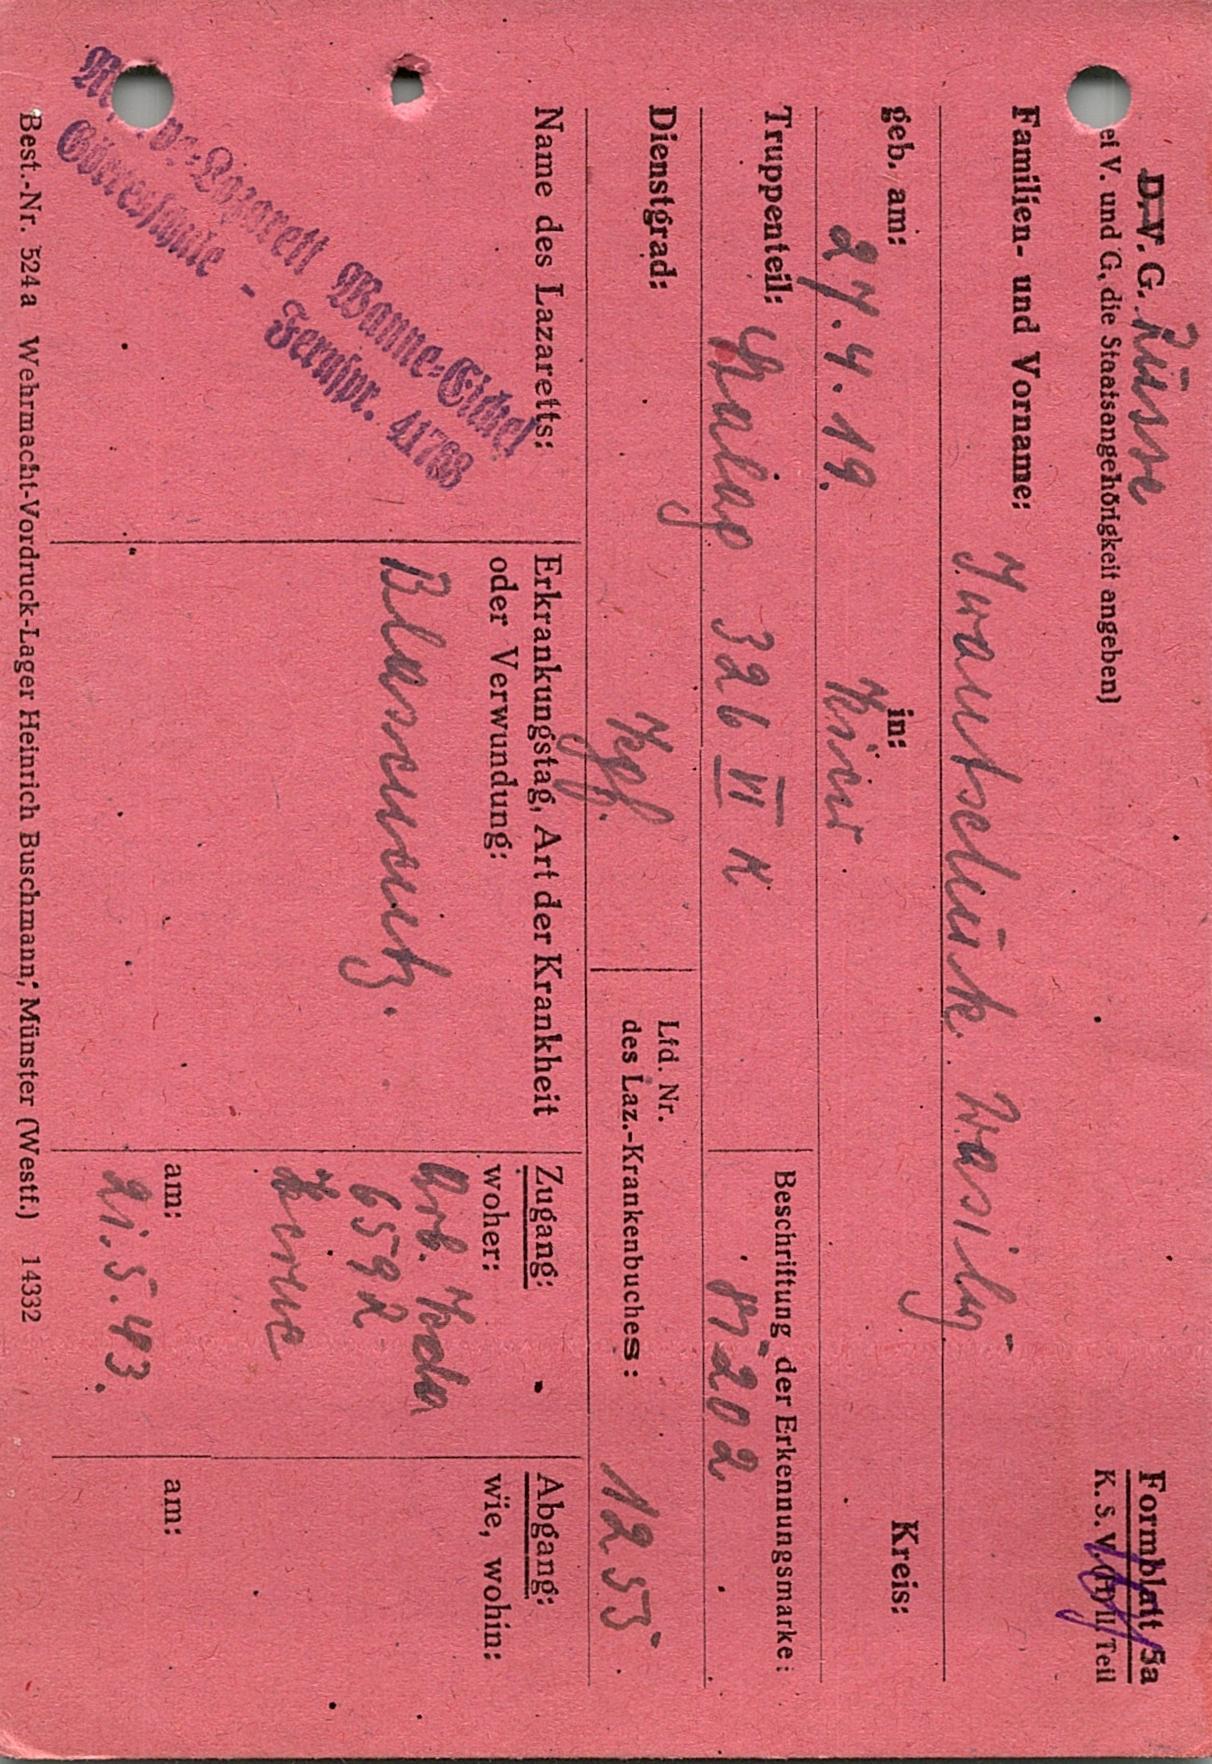 D. V. G. Russe
ei V. und G. die Staatsangehörigkeit angeben)
Formblatt 5a
K. S. V. II/Teil
Familien- und Vorname: Iwantschuk Wasilij
geb. am: 27.4.19. in: Kreis:
Truppenteil: Stalag 326 VI K
Beschriftung der Erkennungsmarke: 17202
Dienstgrad: Kgf.
Lfd. Nr.
des Laz.-Krankenbuches: 1253.
Name des Lazaretts:
Erkrankungstag, Art der Krankheit
oder Verwundung:
Zugang:
woher:
Abgang:
wie, wohin:
Lazarett Wanne-Eickel
Görresschule - Fernspr. 41768
Arb. Kdo
6592
Herne
am: 21.5.43.
am:
Best.-Nr. 524a Wehrmacht-Vordruck-Lager Heinrich Buschmann, Münster (Westf.) 14332